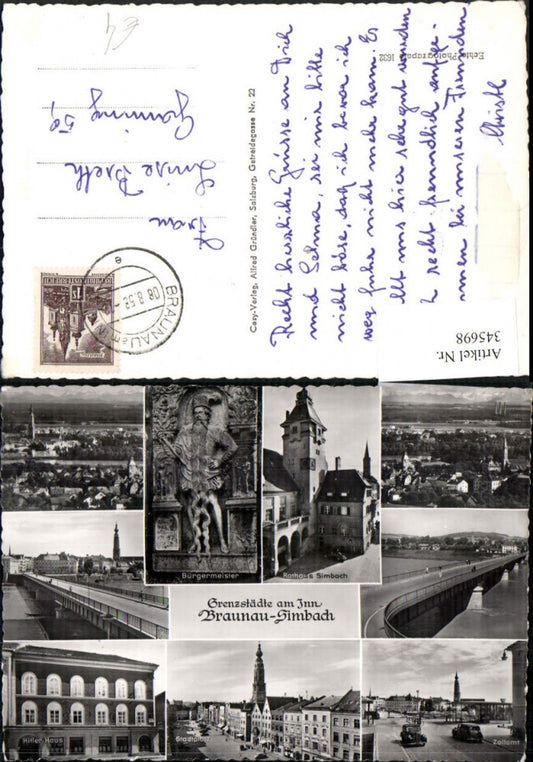 €4
Frau
Luise Breth
Gamming 59
BRAUNAU am INN
08.8.53
e
REPUBLIK ÖSTERREICH
Cosy-Verlag, Alfred Gründler, Salzburg, Getreidegasse Nr. 22
Echte Photographie 1632
Recht herzliche Grüsse an Dich
und Selma, sei mir bitte
nicht böse, daß ich bevor ich
weg fuhr nicht mehr kam. Es
ist uns hier sehr gut und wir wurden
recht freundlich aufge-
men bei unseren Freunden
Christl
Artikel Nr.
345698
Bürgermeister
Rathaus Simbach
Grenzstädte am Inn
Braunau-Simbach
Hitler-Haus
Stadtplatz
Zollamt